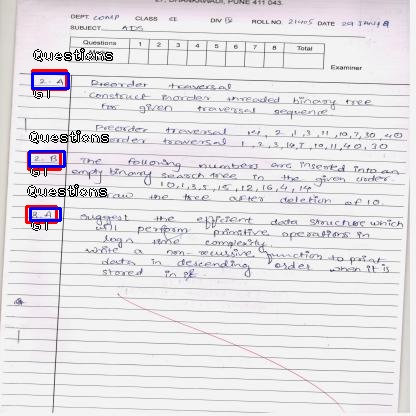 27, DHANKAWADI, PUNE 411 043.
DEPT. COMP CLASS DIV ROLL NO. 21405 DATE
SUBJECT ADS
Questions 1 2 3 4 5 6 7 8 Total
Examiner
Questions
2. A Preorder traversal
GT Construct inorder threaded binary tree
for given traversal sequence
Preorder traversal 14, 2, 1, 3, 11, 10, 7, 30, 40
Questions
order traversal 1, 2, 3, 14, 7, 10, 11, 40, 30
2. B The following numbers are inserted into an
GT empty binary search tree in the given order.
10, 1, 3, 5, 15, 12, 16, 4, 14
Questions
draw the tree after deletion of 10.
3. A suggest the efficient data structure which
GT will perform primitive operations in
logn time complexity.
write a non-recursive function to print
data in descending order when it is
stored in it.